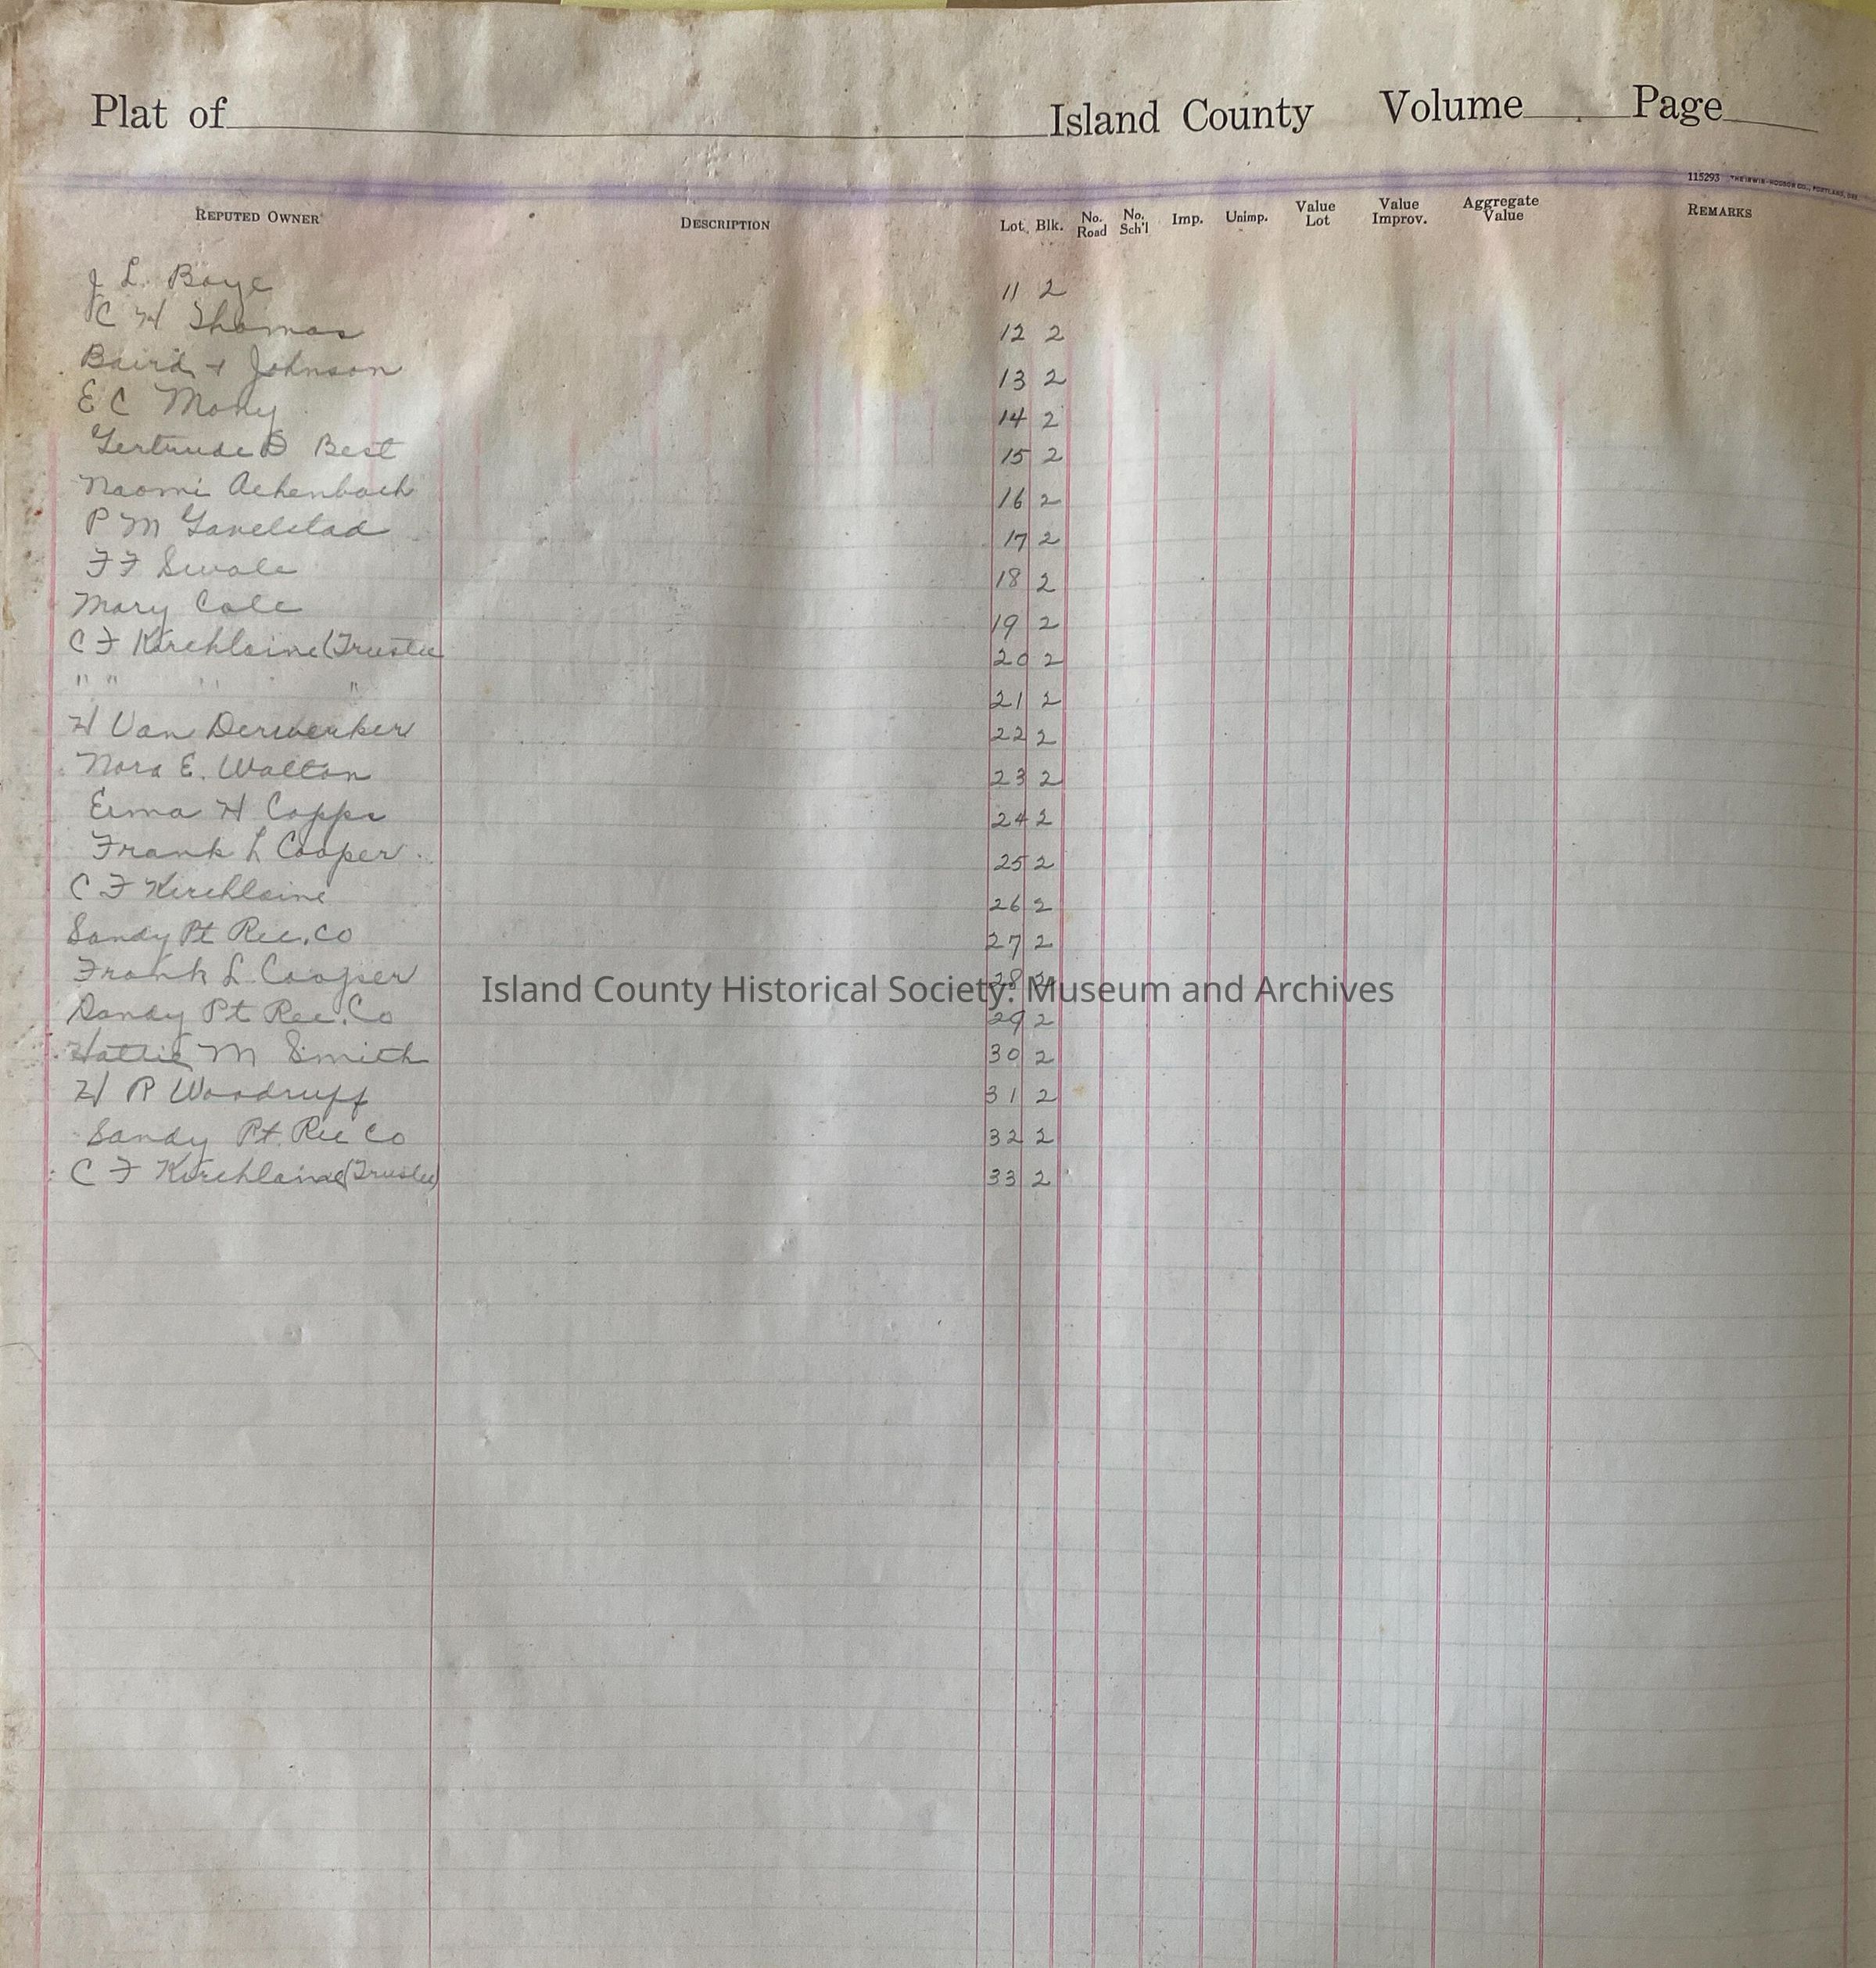 Plat of Island County Volume Page
115293 THE IRWIN-HODSON CO., PORTLAND, ORE.
REPUTED OWNER DESCRIPTION Lot Blk. No. Road No. Sch'l Imp. Unimp. Value Lot Value Improv. Aggregate Value REMARKS
J L. Boye 11 2
C H Thomas 12 2
Baird + Johnson 13 2
E C Mony 14 2
Gertrude D Best 15 2
Naomi Achenbach 16 2
P M 17 2
F F Swale 18 2
Mary Cole 19 2
C F Kirchlaine (Trustee 20 2
" " " " 21 2
H Van Derwerker 22 2
Nora E. Walton 23 2
Erma H Copps 24 2
Frank L Cooper 25 2
C F Kirchlaine 26 2
Sandy Pt Rec. Co 27 2
Frank L Cooper 28 2
Island County Historical Society: Museum and Archives
Sandy Pt Rec. Co 29 2
Hattie M Smith 30 2
H P Woodruff 31 2
Sandy Pt. Rec Co 32 2
C F Kirchlaine (Trustee) 33 2